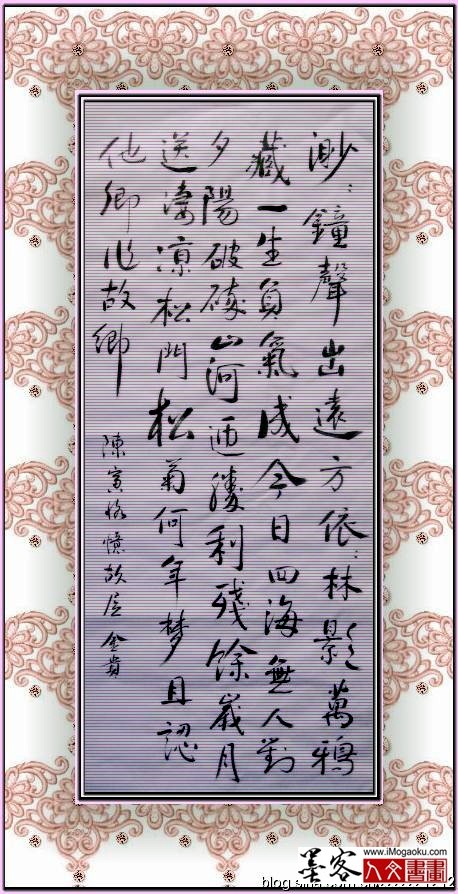 渺〻鐘聲出遠方依〻林影萬鴉
藏一生負氣成今日四海無人對
夕陽破碎山河迎勝利殘餘歲月
送淒凉松門松菊何年梦且認
他鄉作故鄉
陳寅恪憶故居 金貴
www.iMogaoku.com
墨客 人文書畫